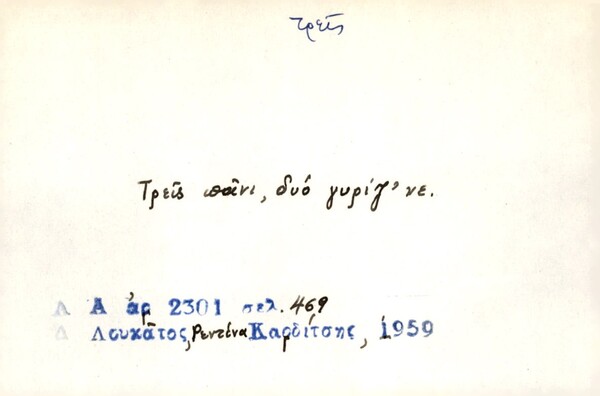 τρεῖς
Τρεῖς πᾶνι, δυό γυρίζ'νε.
Λ Α ἀρ 2301 σελ. 469
Δ Λουκᾶτος, Ρεντίνα Καρδίτσης, 1959